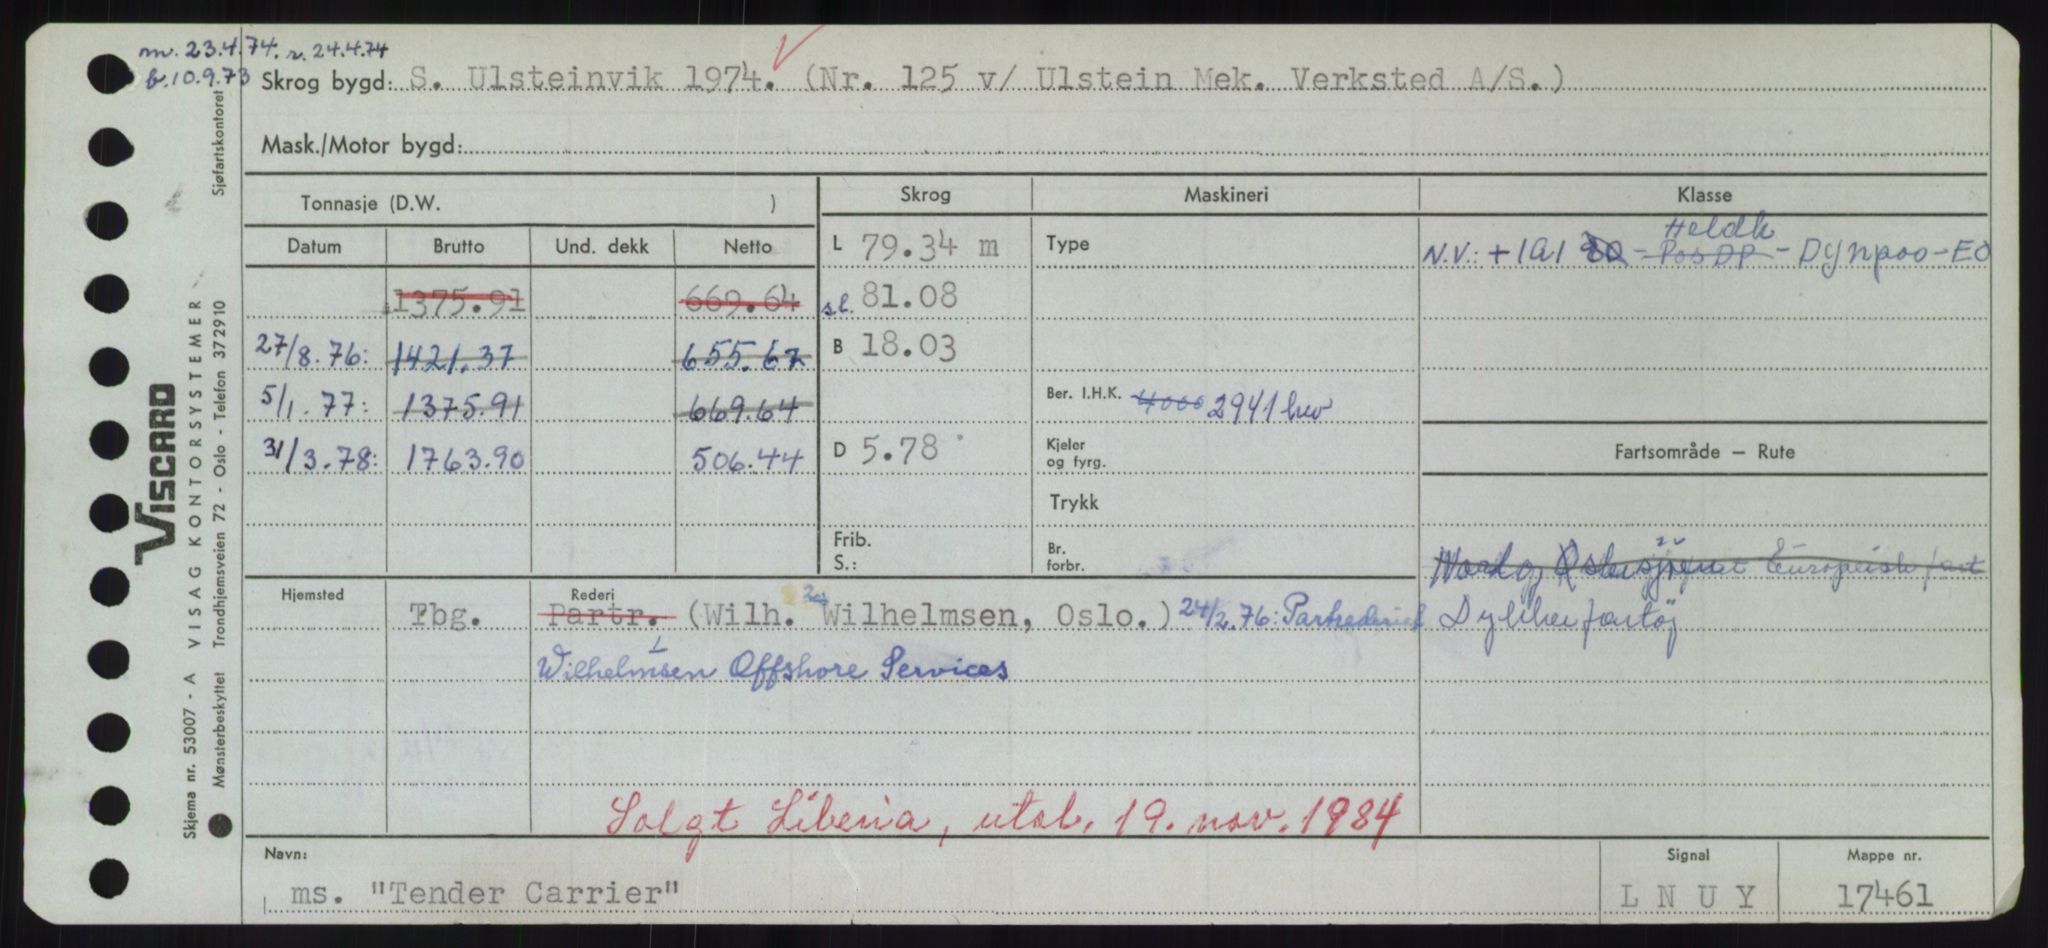 m. 23.4.74. r. 24.4.74
b. 10.9.73
Skrog bygd: S. Ulsteinvik 1974. (Nr. 125 v/ Ulstein Mek. Verksted A/S.)
Mask./Motor bygd:
Tonnasje (D.W. )
Skrog
Maskineri
Klasse
Datum Brutto Und. dekk Netto
L 79.34 m
Type
Heldk
N.V.: + 1A1 - Pos DP - Dynpos - EO
1375.91 669.64
sl. 81.08
27/8.76: 1421.37 655.67
B 18.03
5/1.77: 1375.91 669.64
Ber. I.H.K. 4000 2941 kw
31/3.78: 1763.90 506.44
D 5.78
Kjeler
og fyrg.
Fartsområde – Rute
Trykk
Frib.
S.:
Br.
forbr.
Nord og Østersjøen Europeisk fart
Dykkerfartøj
Hjemsted
Tbg.
Rederi
Partr. (Wilh. Wilhelmsen, Oslo.) 24/2.76: Partrederiet
Wilhelmsen Offshore Services
Solgt Liberia, utsl. 19. nov. 1984
Navn:
ms. "Tender Carrier"
Signal
LNUY
Mappe nr.
17461
VISCARD
VISAG KONTORSYSTEMER
Sjøfartskontoret
Skjema nr. 53007 - A
Mønsterbeskyttet Trondhjemsveien 72 - Oslo - Telefon 372910